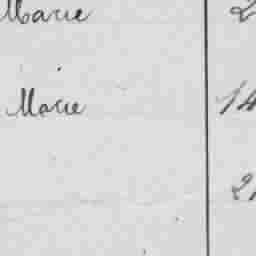 Marie 2
Marie 14
21